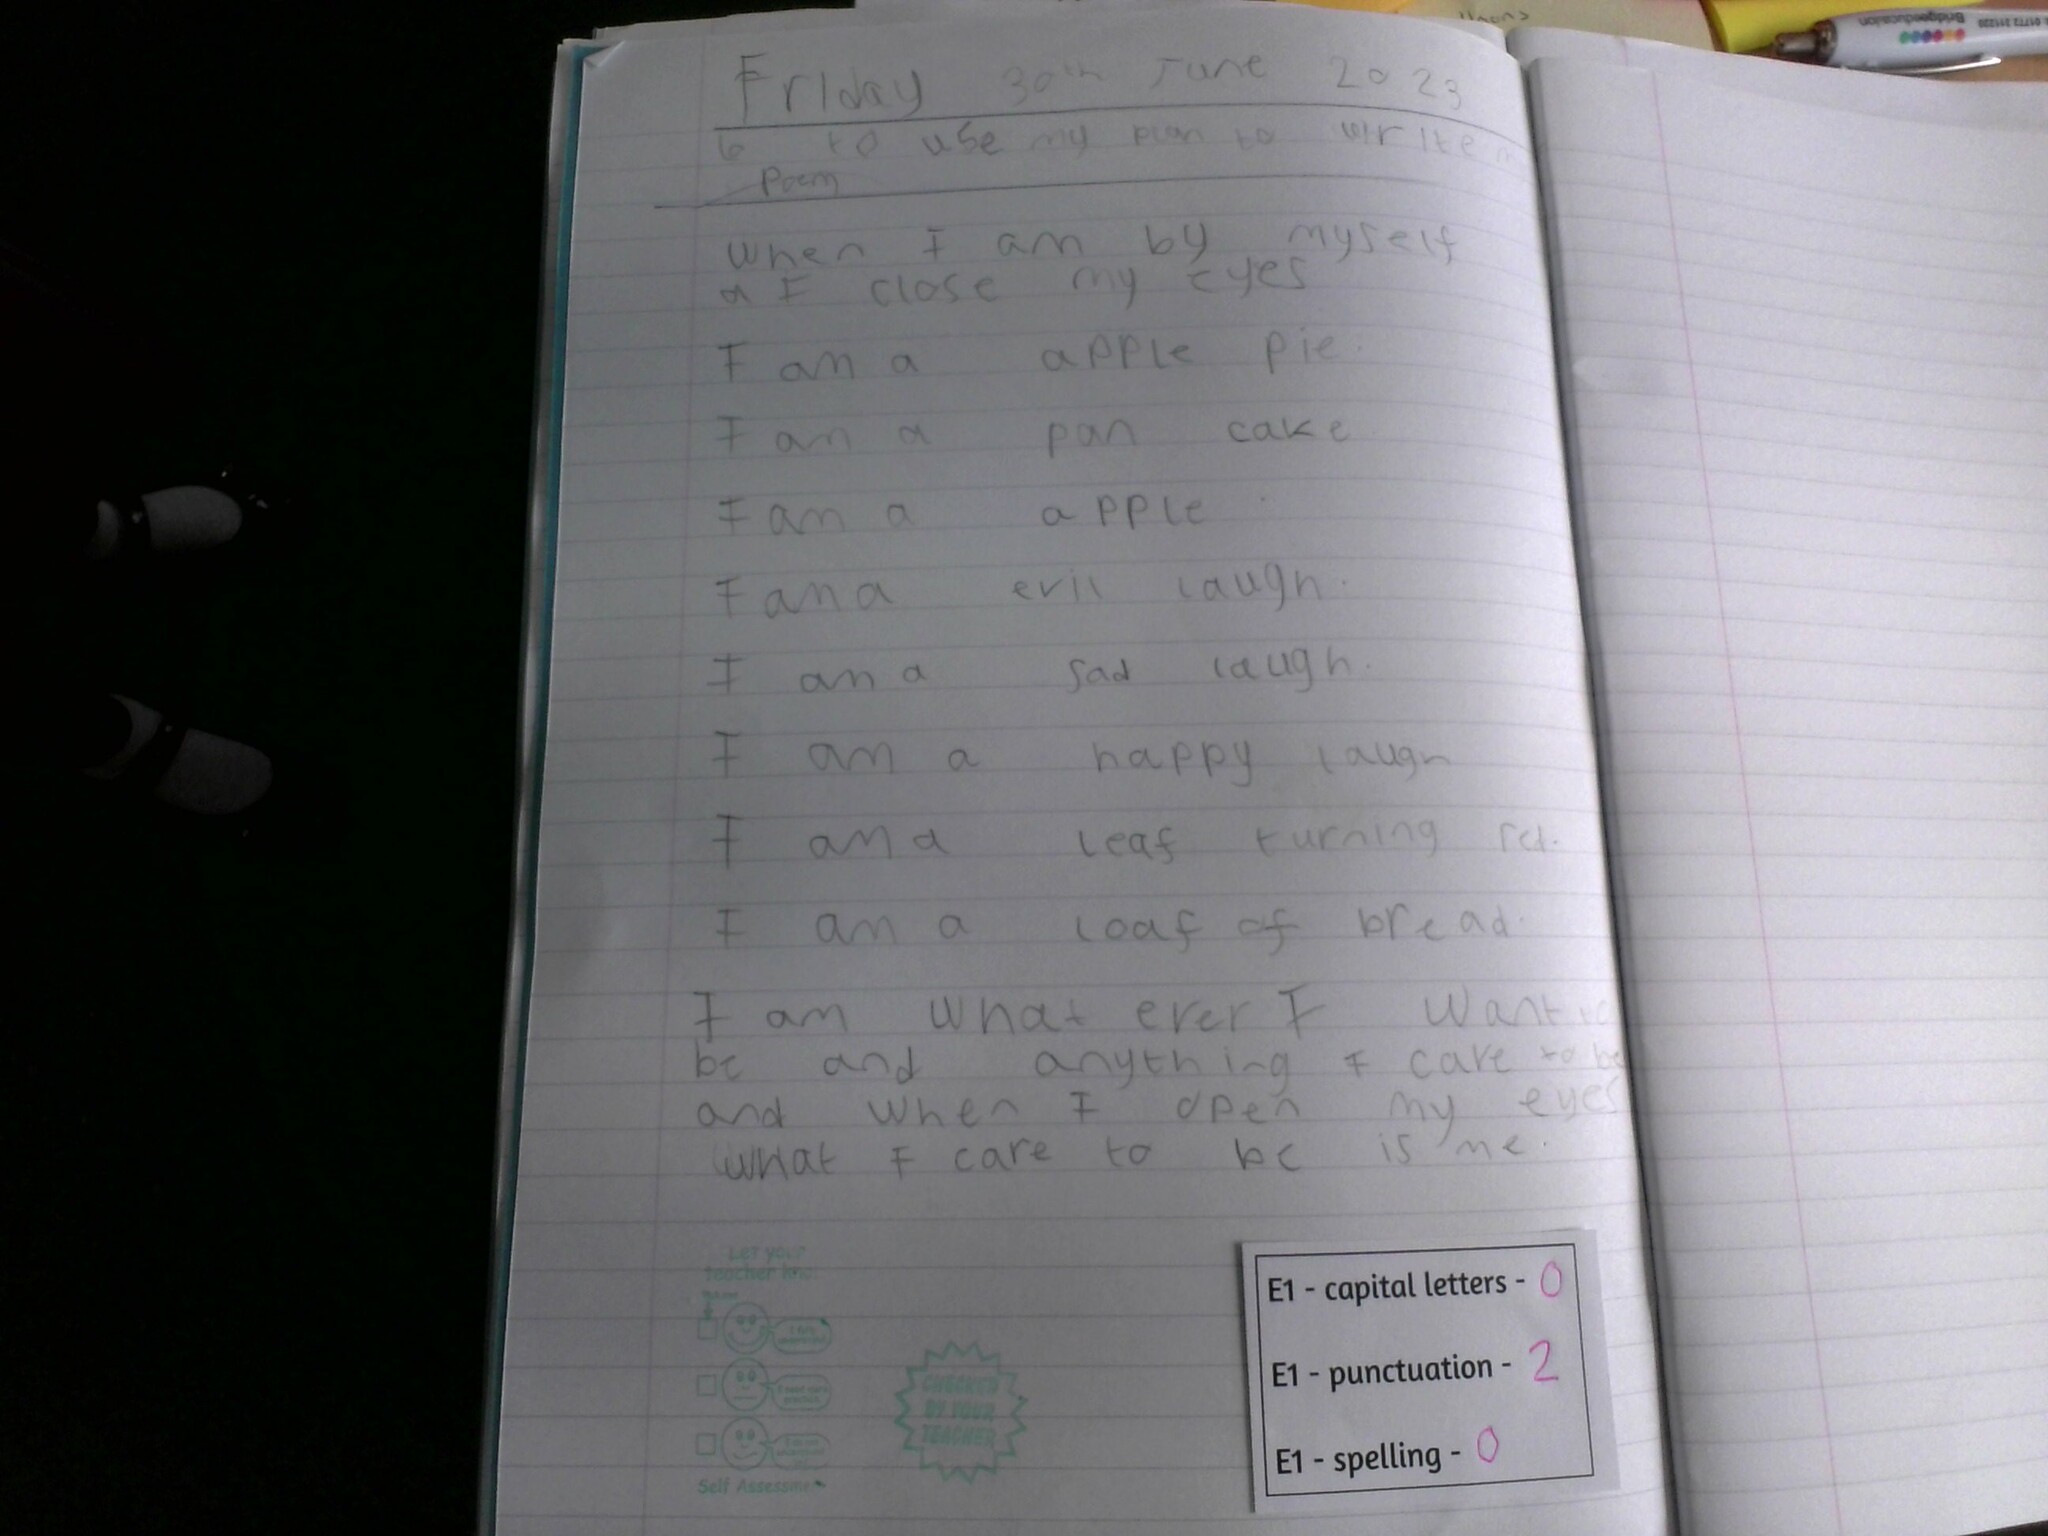 Friday 30th June 2023
to use my plan to write a
Poem
When I am by myself
I close my eyes
I am a apple pie.
I am a pan cake
I am a apple.
I am a evil laugh.
I am a sad laugh.
I am a happy laugh
I am a leaf turning red.
I am a loaf of bread.
I am what ever I want to
be and anything I care to be
and when I open my eyes
what I care to be is me.
LET your
teacher
Self Assessment
CHECKED
BY YOUR
TEACHER
E1 - capital letters - 0
E1 - punctuation - 2
E1 - spelling - 0
Bridgeeducation
01772 211220